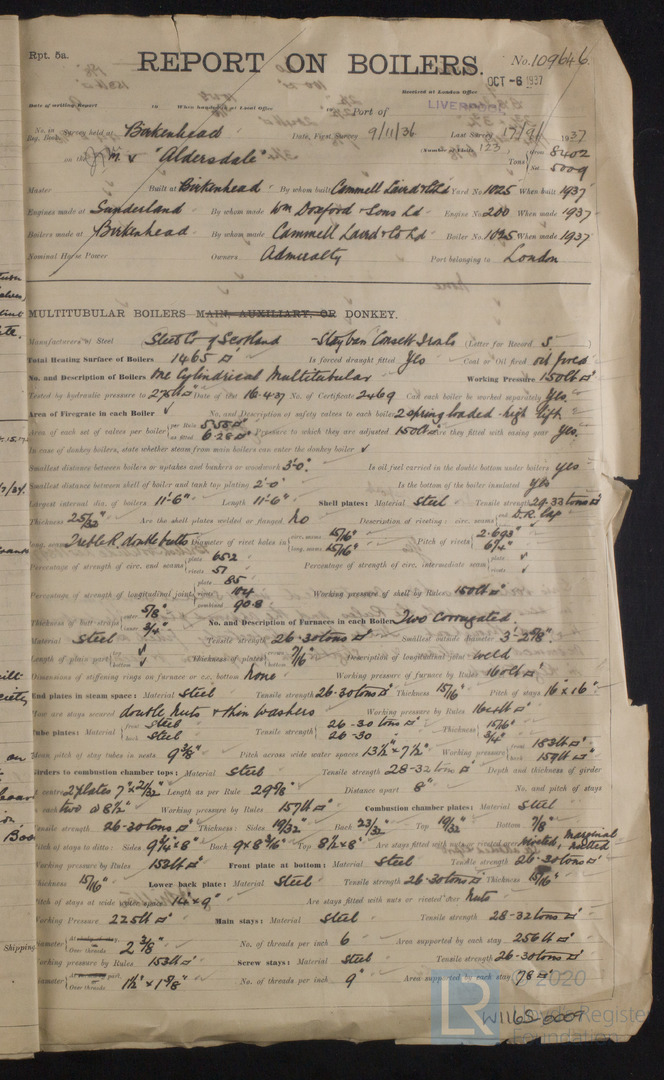 Rpt. 5a.
REPORT ON BOILERS.
No. 109646
OCT -6 1937
Received at London Office
Date of writing Report When handed in at Local Office Port of LIVERPOOL
No. in Reg. Book Survey held at Birkenhead Date, First Survey 9/11/36 Last Survey 1937
on the M V "Aldersdale" (Number of Visits 123) Tons Gross 8402
Net 5009
Master Built at Birkenhead By whom built Cammell Laird & Co Ld Yard No. 1025 When built 1937
Engines made at Sunderland By whom made Wm Doxford & Sons Ld Engine No. 200 When made 1937
Boilers made at Birkenhead By whom made Cammell Laird & Co Ld Boiler No. 1025 When made 1937
Nominal Horse Power Owners Admiralty Port belonging to London
MULTITUBULAR BOILERS MAIN, AUXILIARY, OR DONKEY.
Manufacturers of Steel Steel Co of Scotland (Letter for Record S)
Total Heating Surface of Boilers 1465 □' Is forced draught fitted Yes Coal or Oil fired oil fired
No. and Description of Boilers One Cylindrical Multitubular Working Pressure 150 lb □"
Tested by hydraulic pressure to 275 lb □" Date of test 16.4.37 No. of Certificate 2469 Can each boiler be worked separately Yes.
Area of Firegrate in each Boiler ✓ No. and Description of safety valves to each boiler 2 spring loaded high lift
Area of each set of valves per boiler per Rule 5.58 □"
as fitted 6.28 □" Pressure to which they are adjusted 150 lb □" Are they fitted with easing gear Yes.
In case of donkey boilers, state whether steam from main boilers can enter the donkey boiler ✓
Smallest distance between boilers or uptakes and bunkers or woodwork 3'-0" Is oil fuel carried in the double bottom under boilers yes
Smallest distance between shell of boiler and tank top plating 2'-0" Is the bottom of the boiler insulated yes
Largest internal dia. of boilers 11'-6" Length 11'-6" Shell plates: Material Steel Tensile strength 29-33 tons □"
Thickness 25/32 Are the shell plates welded or flanged No Description of riveting: circ. seams end D.R. lap
long. seams Treble R. double butts Diameter of rivet holes in circ. seams 15/16"
long. seams 15/16" Pitch of rivets 2.693"
6 1/4"
Percentage of strength of circ. end seams plate 65.2
rivets 51 Percentage of strength of circ. intermediate seam plate ✓
rivets ✓
Percentage of strength of longitudinal joint plate 85
rivets 104
combined 90.8 Working pressure of shell by Rules 150 lb □"
Thickness of butt straps outer 5/8"
inner 3/4" No. and Description of Furnaces in each Boiler Two Corrugated.
Material Steel Tensile strength 26-30 tons □" Smallest outside diameter 3'-2 7/8"
Length of plain part top ✓
bottom ✓ Thickness of plates 7/16" Description of longitudinal joint weld
Dimensions of stiffening rings on furnace or c.c. bottom None Working pressure of furnace by Rules 160 lb □"
End plates in steam space: Material Steel Tensile strength 26-30 tons □" Thickness 15/16" Pitch of stays 16" x 16"
How are stays secured double nuts & thin washers Working pressure by Rules 164 lb □"
Tube plates: Material front Steel
back Steel Tensile strength 26-30 tons □"
26-30 Thickness 15/16"
3/4"
Mean pitch of stay tubes in nests 9 3/8" Pitch across wide water spaces 13 1/2" x 7 1/2" Working pressure front 153 lb □"
back 159 lb □"
Girders to combustion chamber tops: Material Steel Tensile strength 28-32 tons □" Depth and thickness of girder
at centre 2 plates 7" x 21/32" Length as per Rule 29 5/8" Distance apart 8" No. and pitch of stays
in each two @ 8 1/2" Working pressure by Rules 157 lb □" Combustion chamber plates: Material Steel
Tensile strength 26-30 tons □" Thickness: Sides 19/32" Back 23/32" Top 19/32" Bottom 7/8"
Pitch of stays to ditto: Sides 9 1/4" x 8" Back 9" x 8 3/16" Top 8 1/2" x 8" Are stays fitted with nuts or riveted over Riveted, marginal nutted
Working pressure by Rules 153 lb □" Front plate at bottom: Material Steel Tensile strength 26-30 tons □"
Thickness 15/16" Lower back plate: Material Steel Tensile strength 26-30 tons □" Thickness 15/16"
Pitch of stays at wide water space 14" x 9" Are stays fitted with nuts or riveted over Nuts
Working Pressure 225 lb □" Main stays: Material Steel Tensile strength 28-32 tons □"
Diameter Over threads 2 3/8" No. of threads per inch 6 Area supported by each stay 256 □"
Working pressure by Rules 153 lb □" Screw stays: Material Steel Tensile strength 26-30 tons □"
Diameter Over threads 1 1/2" x 1 5/8" No. of threads per inch 9" Area supported by each stay 78 □"
© 2020
LR Lloyd's Register Foundation
W1165-0009